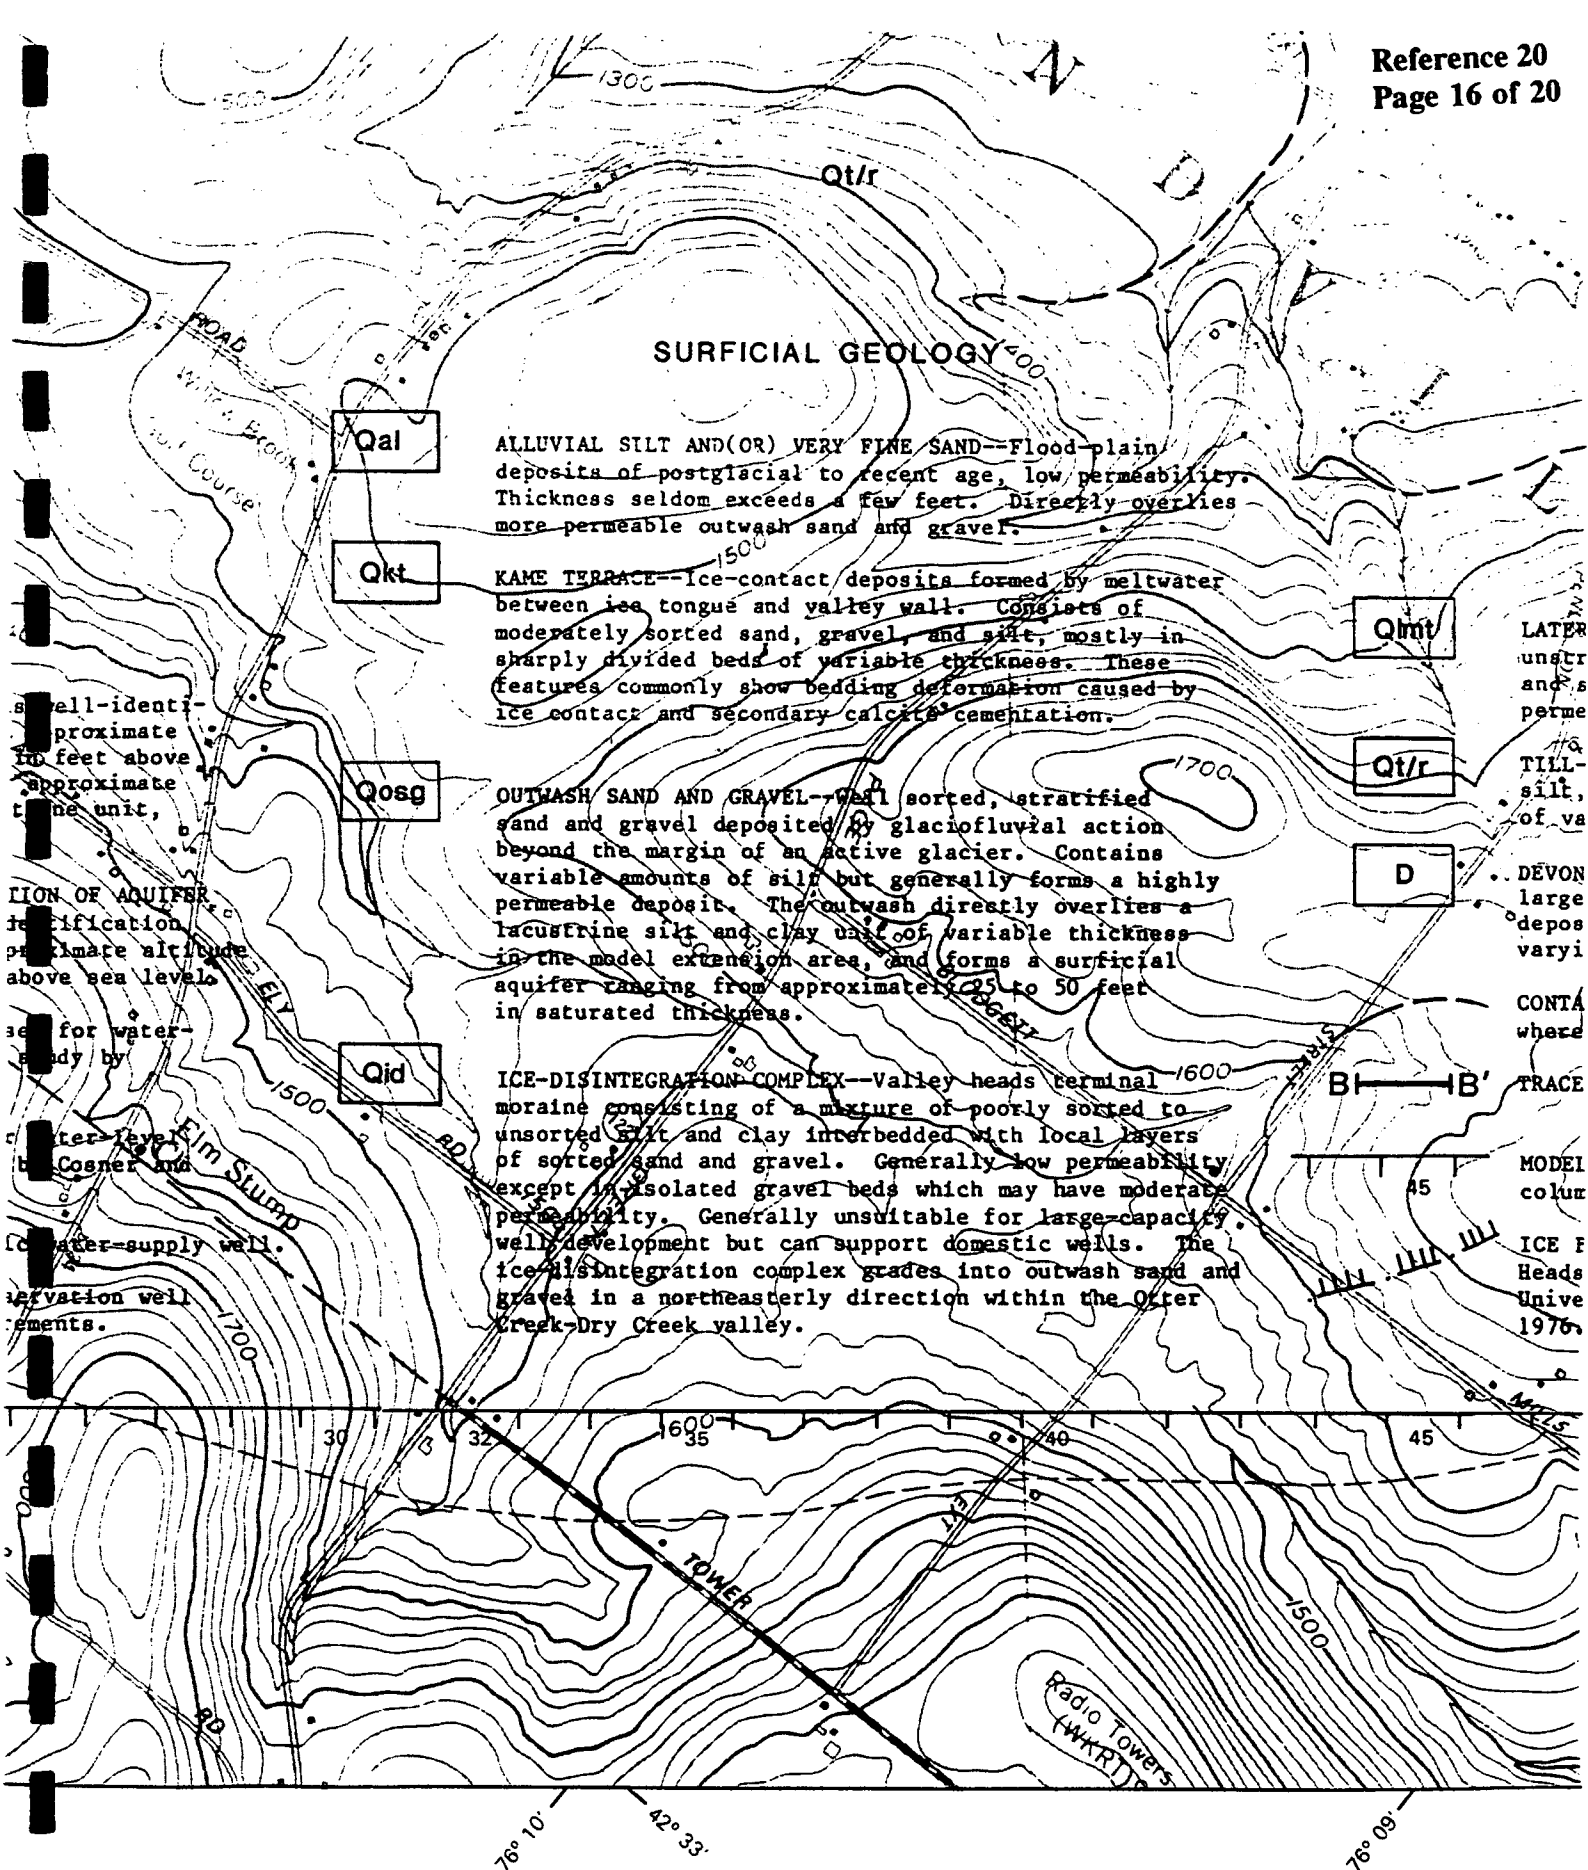 Reference 20
Page 16 of 20
1300
1500
N
D
V
I
L
Qt/r
ROAD
Course
SURFICIAL GEOLOGY
400
Qal
ALLUVIAL SILT AND(OR) VERY FINE SAND--Flood-plain
deposits of postglacial to recent age, low permeability.
Thickness seldom exceeds a few feet. Directly overlies
more permeable outwash sand and gravel.
1500
Qkt
KAME TERRACE--Ice-contact deposits formed by meltwater
between ice tongue and valley wall. Consists of
moderately sorted sand, gravel, and silt, mostly in
sharply divided beds of variable thickness. These
features commonly show bedding deformation caused by
ice contact and secondary calcite cementation.
Qosg
OUTWASH SAND AND GRAVEL--Well sorted, stratified
sand and gravel deposited by glaciofluvial action
beyond the margin of an active glacier. Contains
variable amounts of silt but generally forms a highly
permeable deposit. The outwash directly overlies a
lacustrine silt and clay unit of variable thickness
in the model extension area, and forms a surficial
aquifer ranging from approximately 25 to 50 feet
in saturated thickness.
Qid
ICE-DISINTEGRATION COMPLEX--Valley heads terminal
moraine consisting of a mixture of poorly sorted to
unsorted silt and clay interbedded with local layers
of sorted sand and gravel. Generally low permeability
except in isolated gravel beds which may have moderate
permeability. Generally unsuitable for large-capacity
well development but can support domestic wells. The
ice-disintegration complex grades into outwash sand and
gravel in a northeasterly direction within the Otter
Creek-Dry Creek valley.
well-identi-
proximate
in feet above
approximate
ne unit,
TION OF AQUIFER
tification
ximate altitude
above sea level.
for water-
dy by
ter-level
Cosner and
water-supply well.
ervation well
ements.
ELY
RD
Elm Stump
1500
1700
1700
1600
BLODGETT
STREET
Qlmt
LATER
unstr
and s
perme
Qt/r
TILL-
silt,
of va
D
DEVON
large
depos
varyi
CONTA
where
B B'
TRACE
45
MODEL
colum
ICE F
Heads
Unive
1976.
MILLS
30
32
1600
35
40
45
TOWER
1500
RD
Radio Towers
(WKRT)
76° 10'
42° 33'
76° 09'